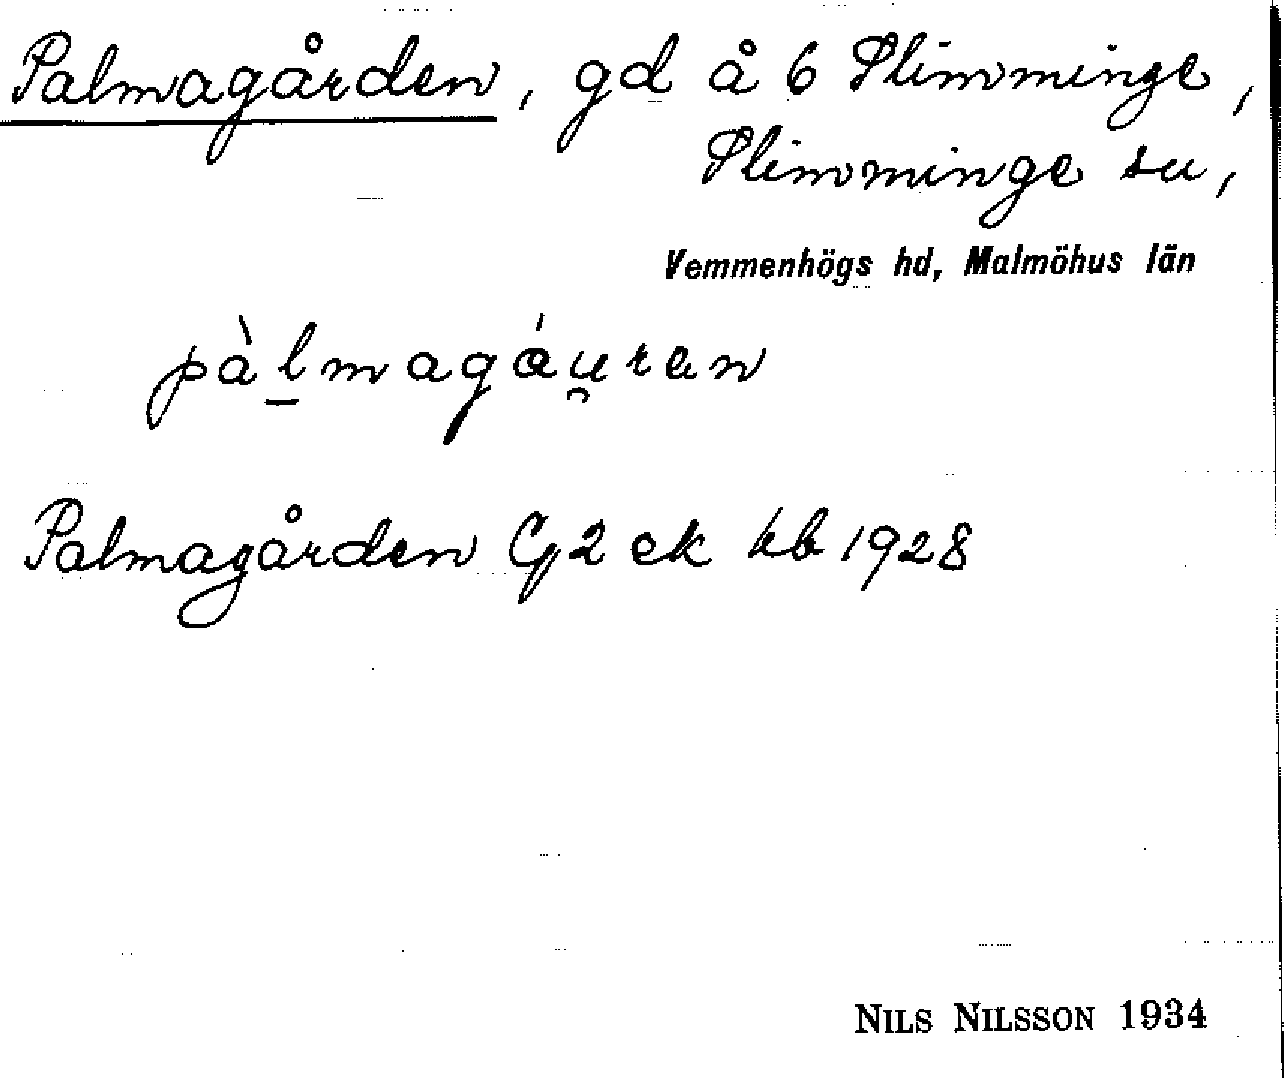 Palmagården, gd å 6 Slimminge,
Slimminge sn,
Vemmenhögs hd, Malmöhus län
pàl̠magáu̯ren
Palmagården G2 ek kb 1928
NILS NILSSON 1934